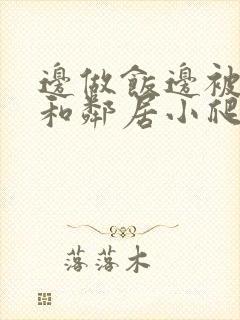 邊做飯邊被
和鄰居小爬
落落木